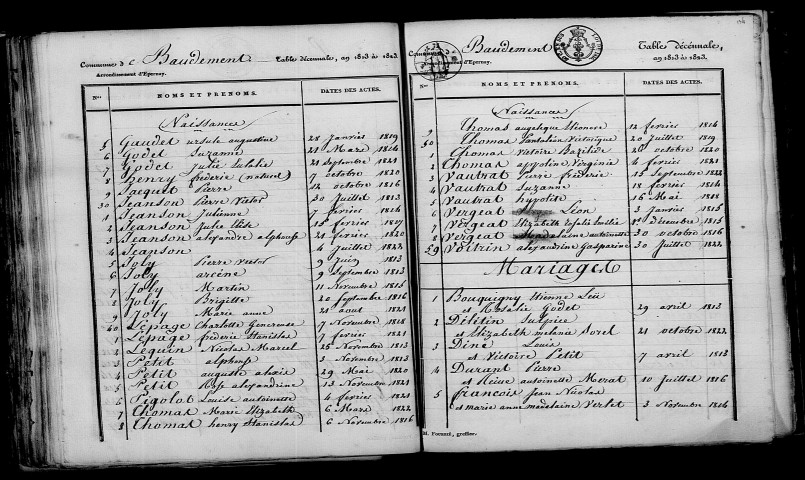 Commune de Baudement Table décennale, an 1813 à 1823.
Arrondissement d'Epernay.
Nos NOMS ET PRENOMS. DATES DES ACTES.
Naissances
5 Gaudet ursule augustine 28 Janvier 1819
6 Godet Suzanne 21 Mars 1814
7 Godet Julie Eulalie 21 Septembre 1821
8 henry frederic (naturel) 7 octobre 1820
9 Jacquet Pierre 12 octobre 1816
30 Jeanson Pierre Victor 30 Juillet 1813
1 Jeanson Julienne 7 fevrier 1814
2 Jeanson Julie Elise 15 fevrier 1817
3 Jeanson alexandre alphonse 28 fevrier 1820
4 Jeanson 4 Juillet 1822
5 Joly Pierre Victor 9 Juin 1813
6 Joly arcène 9 Septembre 1813
7 Joly Martin 11 Novembre 1815
8 Joly Brigitte 20 Septembre 1816
9 Joly Marie anne 21 aout 1821
40 Lepage Charlotte Genereuse 7 Novembre 1818
1 Lepage frederic Stanislas 7 fevrier 1821
2 Lequin Nicolas Marcel 25 Novembre 1813
3 Petit alphonse 3 Novembre 1813
4 Petit auguste alexis 29 Mai 1820
5 Petit Rose alexandrine 13 Novembre 1821
6 Pigolot Louise antoinette 4 fevrier 1821
7 Thomas Marie Elizabeth 6 Mars 1822
8 Thomas henry Stanislas 6 Novembre 1816
Commune Baudement Table décennale, an 1813 à 1823.
d'Epernay.
Nos NOMS ET PRENOMS. DATES DES ACTES.
Naissances
9 Thomas angelique Eleonore 12 fevrier 1814
50 Thomas Pantaléon Véronique 20 Juillet 1819
1 Thomas Victoire Bazilide 20 octobre 1820
2 Thomas appoline Virginie 4 fevrier 1821
3 Vautrat Pierre frederic 15 Septembre 1822
4 Vautrat Suzanne 18 fevrier 1814
5 Vautrat hypolite 16 Mai 1818
6 Vergeat Léon 3 Janvier 1815
7 Vergeat Elizabeth Emilie 1er décembre 1815
8 Vergeat antoinette 30 octobre 1816
59 Voitrin alexandrine Gasparine 30 Juillet 1822
Mariages
1 Bouquigny Etienne Leü
et Rosalie Godet 29 avril 1813
2 Délétin Sulpice
et Elizabeth melana Sorel 21 octobre 1822
3 Diné Louis
et Victoire Petit 7 avril 1813
4 Durant Pierre
et Reine antoinette Merat 10 Juillet 1816
5 francois Jean Nicolas
et marie anne madelaine Verlet 3 Novembre 1814
greffier.